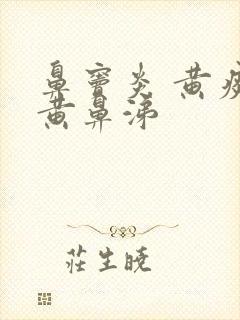 鼻窦炎 黄
黄鼻涕
莊生晓